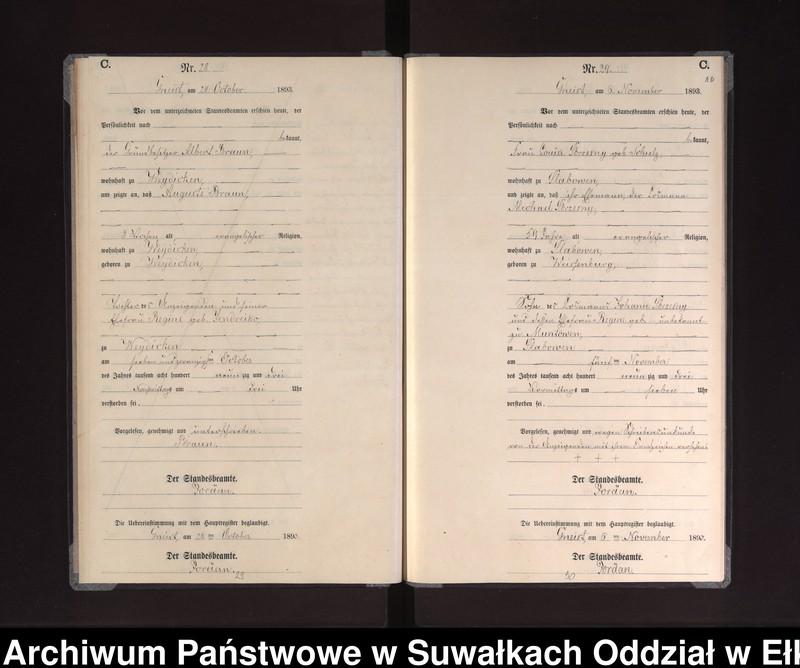 C.
Nr. 28
Gneist, am 28 October 1893.
Vor dem unterzeichneten Standesbeamten erschien heute, der
Persönlichkeit nach
bekannt,
der Grundbesitzer Albert Braun,
wohnhaft zu Weydicken,
und zeigte an, daß Auguste Braun,
Wochen alt evangelischer Religion,
wohnhaft zu Weydicken,
geboren zu Weydicken,
Tochter des Anzeigenden und seiner
Ehefrau Regine geb.
zu Weydicken
am sieben und zwanzigsten October
des Jahres tausend acht hundert neunzig und drei
Nachmittags um drei Uhr
verstorben sei.
Vorgelesen, genehmigt und unterschrieben.
Braun.
Der Standesbeamte.
Jordan.
Die Uebereinstimmung mit dem Hauptregister beglaubigt.
Gneist, am 28 ten October 1893.
Der Standesbeamte.
Jordan.
C.
Nr. 29
Gneist, am 6. November 1893.
Vor dem unterzeichneten Standesbeamten erschien heute, der
Persönlichkeit nach
bekannt,
Frau Louise geb.
wohnhaft zu Slabowen,
und zeigte an, daß ihr Ehemann, der Losmann
Michael
Jahre alt evangelischer Religion,
wohnhaft zu Slabowen,
geboren zu Weissenburg,
Sohn des Losmanns Johann
und dessen Ehefrau Regine geb. unbekannt
zu Muntowen,
zu Slabowen
am fünften November
des Jahres tausend acht hundert neunzig und drei
Vormittags um sieben Uhr
verstorben sei.
Vorgelesen, genehmigt und wegen Schreibensunkunde
von der Anzeigenden mit ihrem Handzeichen versehen
+ + +
Der Standesbeamte.
Jordan.
Die Uebereinstimmung mit dem Hauptregister beglaubigt.
Gneist, am 6. ten November 1893.
Der Standesbeamte.
Jordan.
Archiwum Państwowe w Suwałkach Oddział w Eł